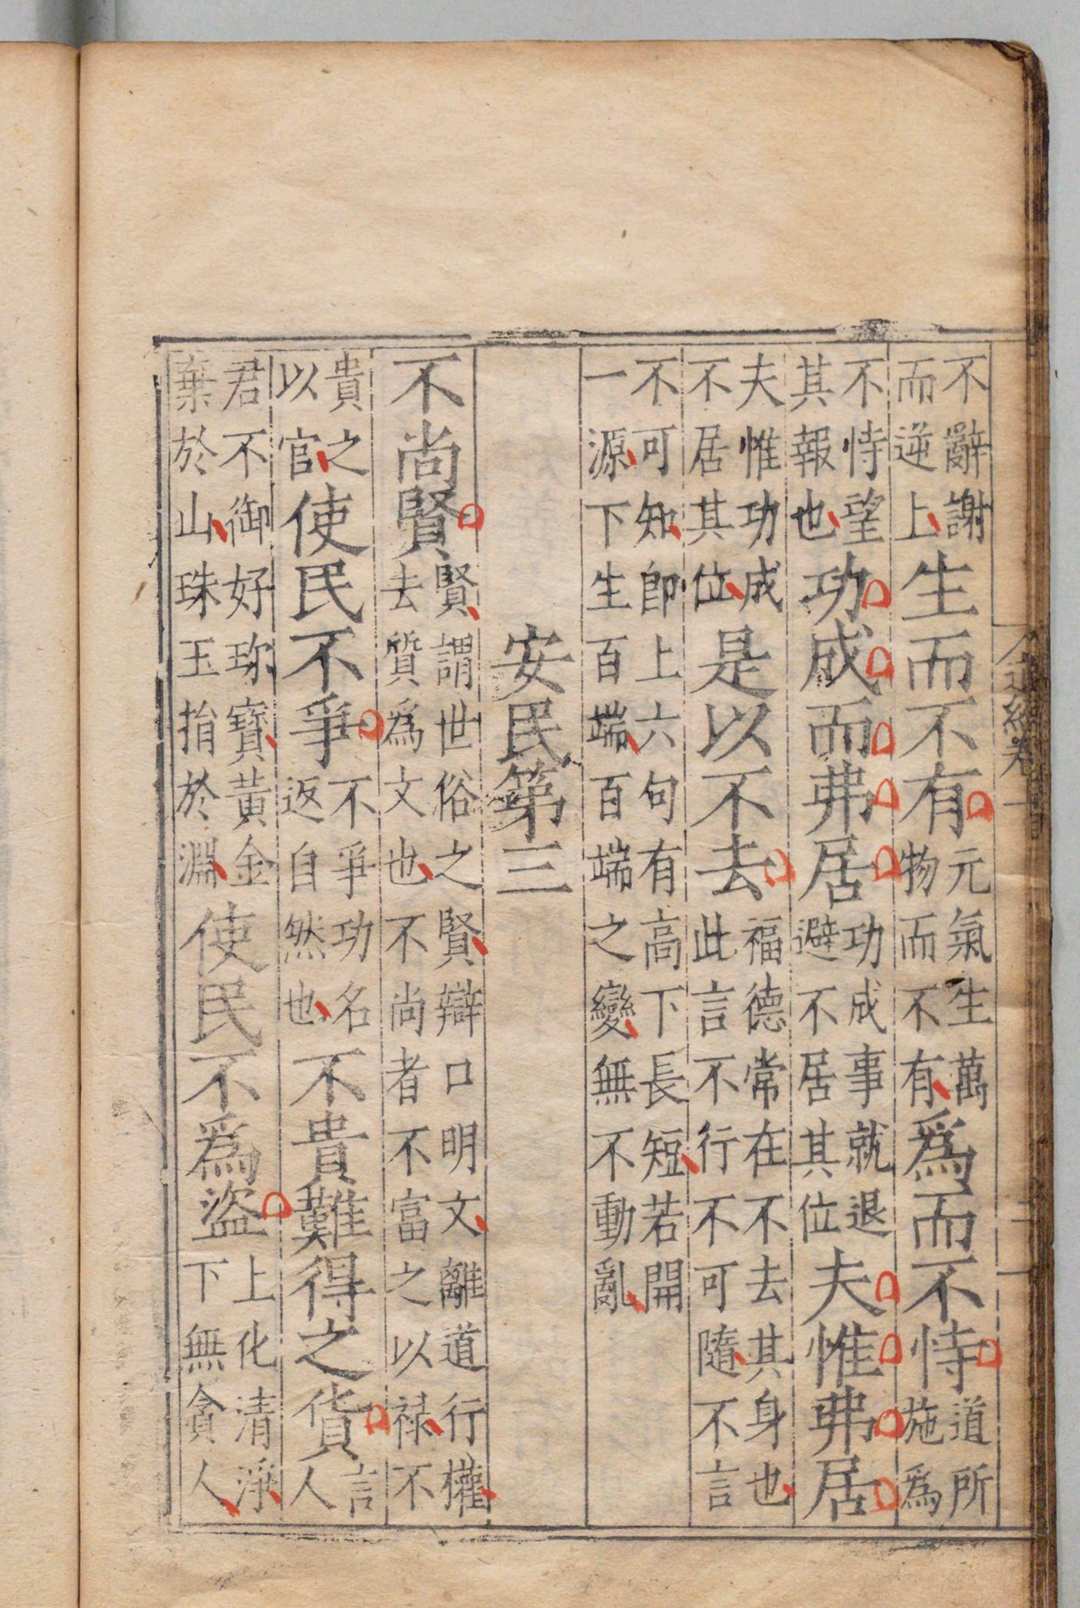 不辭謝而逆上生而不有元氣生萬物而不有爲而不恃道所施爲
不恃望其報也功成而弗居功成事就退避不居其位夫惟弗居
夫惟功成不居其位是以不去福德常在不去其身也此言不行不可隨不言
不可知即上六句有高下長短若開一源下生百端百端之變無不動亂
安民第三
不尚賢賢謂世俗之賢辯口明文離道行權去質爲文也不尚者不富之以禄不
貴之以官使民不爭不爭功名返自然也不貴難得之貨言人
君不御好珎寶黄金棄於山珠玉捐於淵使民不爲盜上化清淨下無貪人